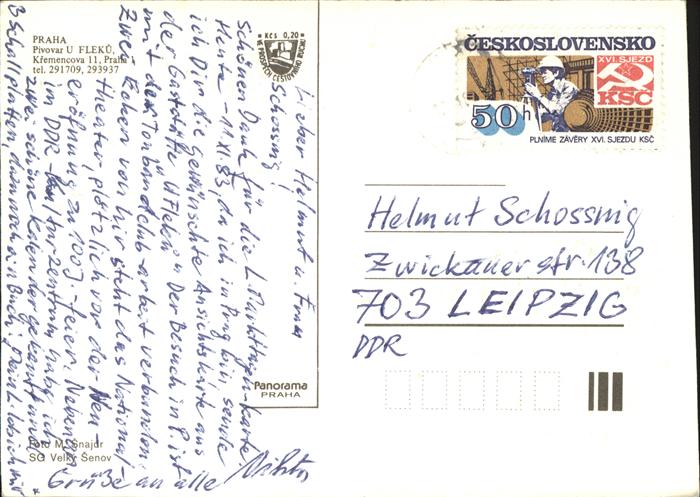 PRAHA
Pivovar U FLEKŮ,
Křemencova 11, Praha 1
tel. 291709, 293937
Kčs 0,20
VE PROSPĚCH CESTOVNÍHO RUCHU
ČESKOSLOVENSKO
XVI. SJEZD
KSČ
50h
PLNÍME ZÁVĚRY XVI. SJEZDU KSČ
Lieber Helmut u. Frau
Schossnig!
Schönen Dank für die L. -Karte.
Heute - 11.XI.83, da ich in Prag bin, sende
ich Dir die gewünschte Ansichtskarte aus
der Gaststätte "U Fleků". Der Besuch in P. ist
mit der Tonbandclub-arbeit verbunden.
Zwei Ecken von hir steht das National-
theater, plötzlich vor der Neu
eröffnung zu 100J-feier. Neben
im DDR-Kulturzentrum habe ich
zwei schöne Kalender gekauft und
3 Schallplatten, dannoch ein Buch.
Grüße an alle
Helmut Schossnig
Zwickauer str. 138
703 LEIPZIG
DDR
Panorama
PRAHA
Foto M. Šnajdr
SG Velký Šenov